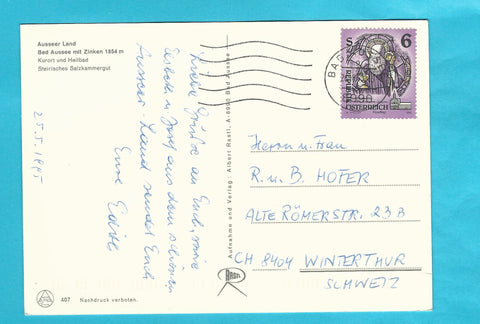 Ausseer Land
Bad Aussee mit Zinken 1854 m
Kurort und Heilbad
Steirisches Salzkammergut
25.5.1995
Liebe Grüße an Euch, sowie
Josef aus dem schönen
Ausseer-Land sendet Euch
Eure
Aufnahme und Verlag: Albert Rastl, A-8990 Bad Aussee
RASTL
6
REPUBLIK
ÖSTERREICH
BAD
Herrn u. Frau
R. u. B. HOFER
ALTE RÖMERSTR. 23 B
CH 8404 WINTERTHUR
SCHWEIZ
407 Nachdruck verboten.